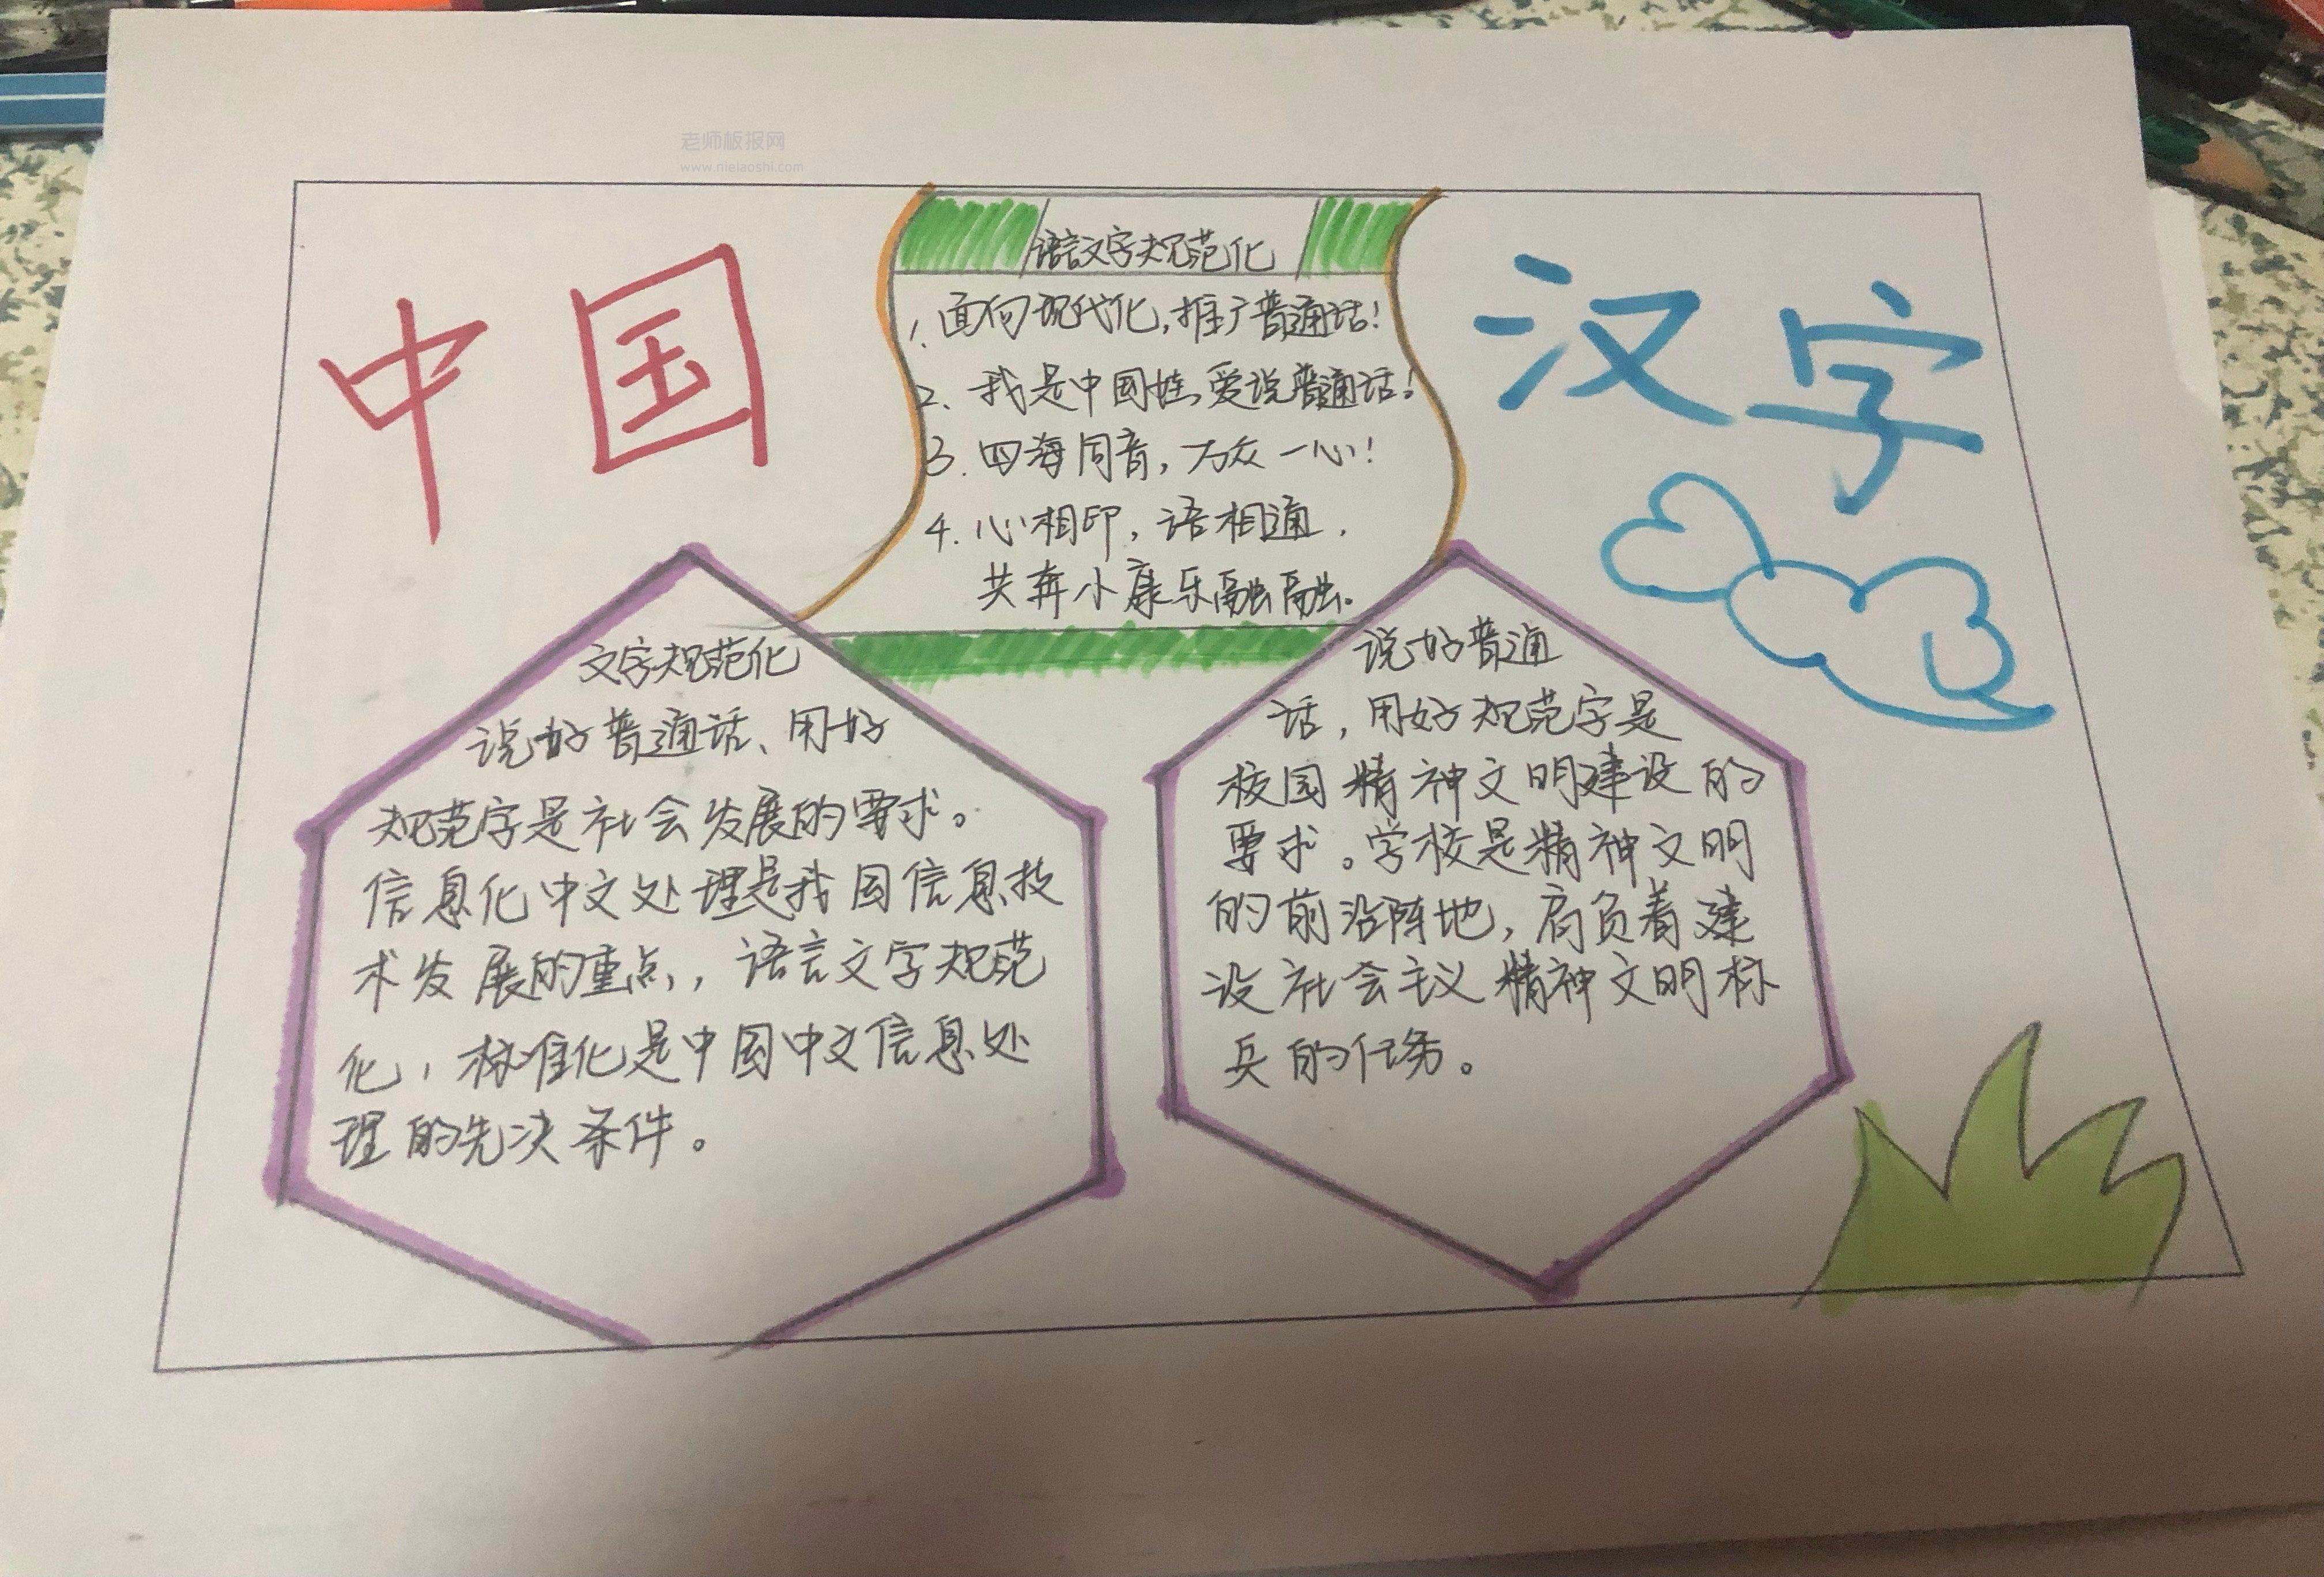 老师板报网
www.nielaoshi.com
中国
汉字
语言文字规范化
1. 面向现代化,推广普通话!
2、我是中国娃,爱说普通话!
3. 四海同音,万众一心!
4. 心相印,语相通.
共奔小康乐融融。
文字规范化
说好普通话、用好
规范字是社会发展的要求。
信息化中文处理是我国信息技
术发展的重点,,语言文字规范
化,标准化是中国中文信息处
理的先决条件。
说好普通
话,用好规范字是
校园精神文明建设的
要求。学校是精神文明
的前沿阵地,肩负着建
设社会主义精神文明标
兵的任务。